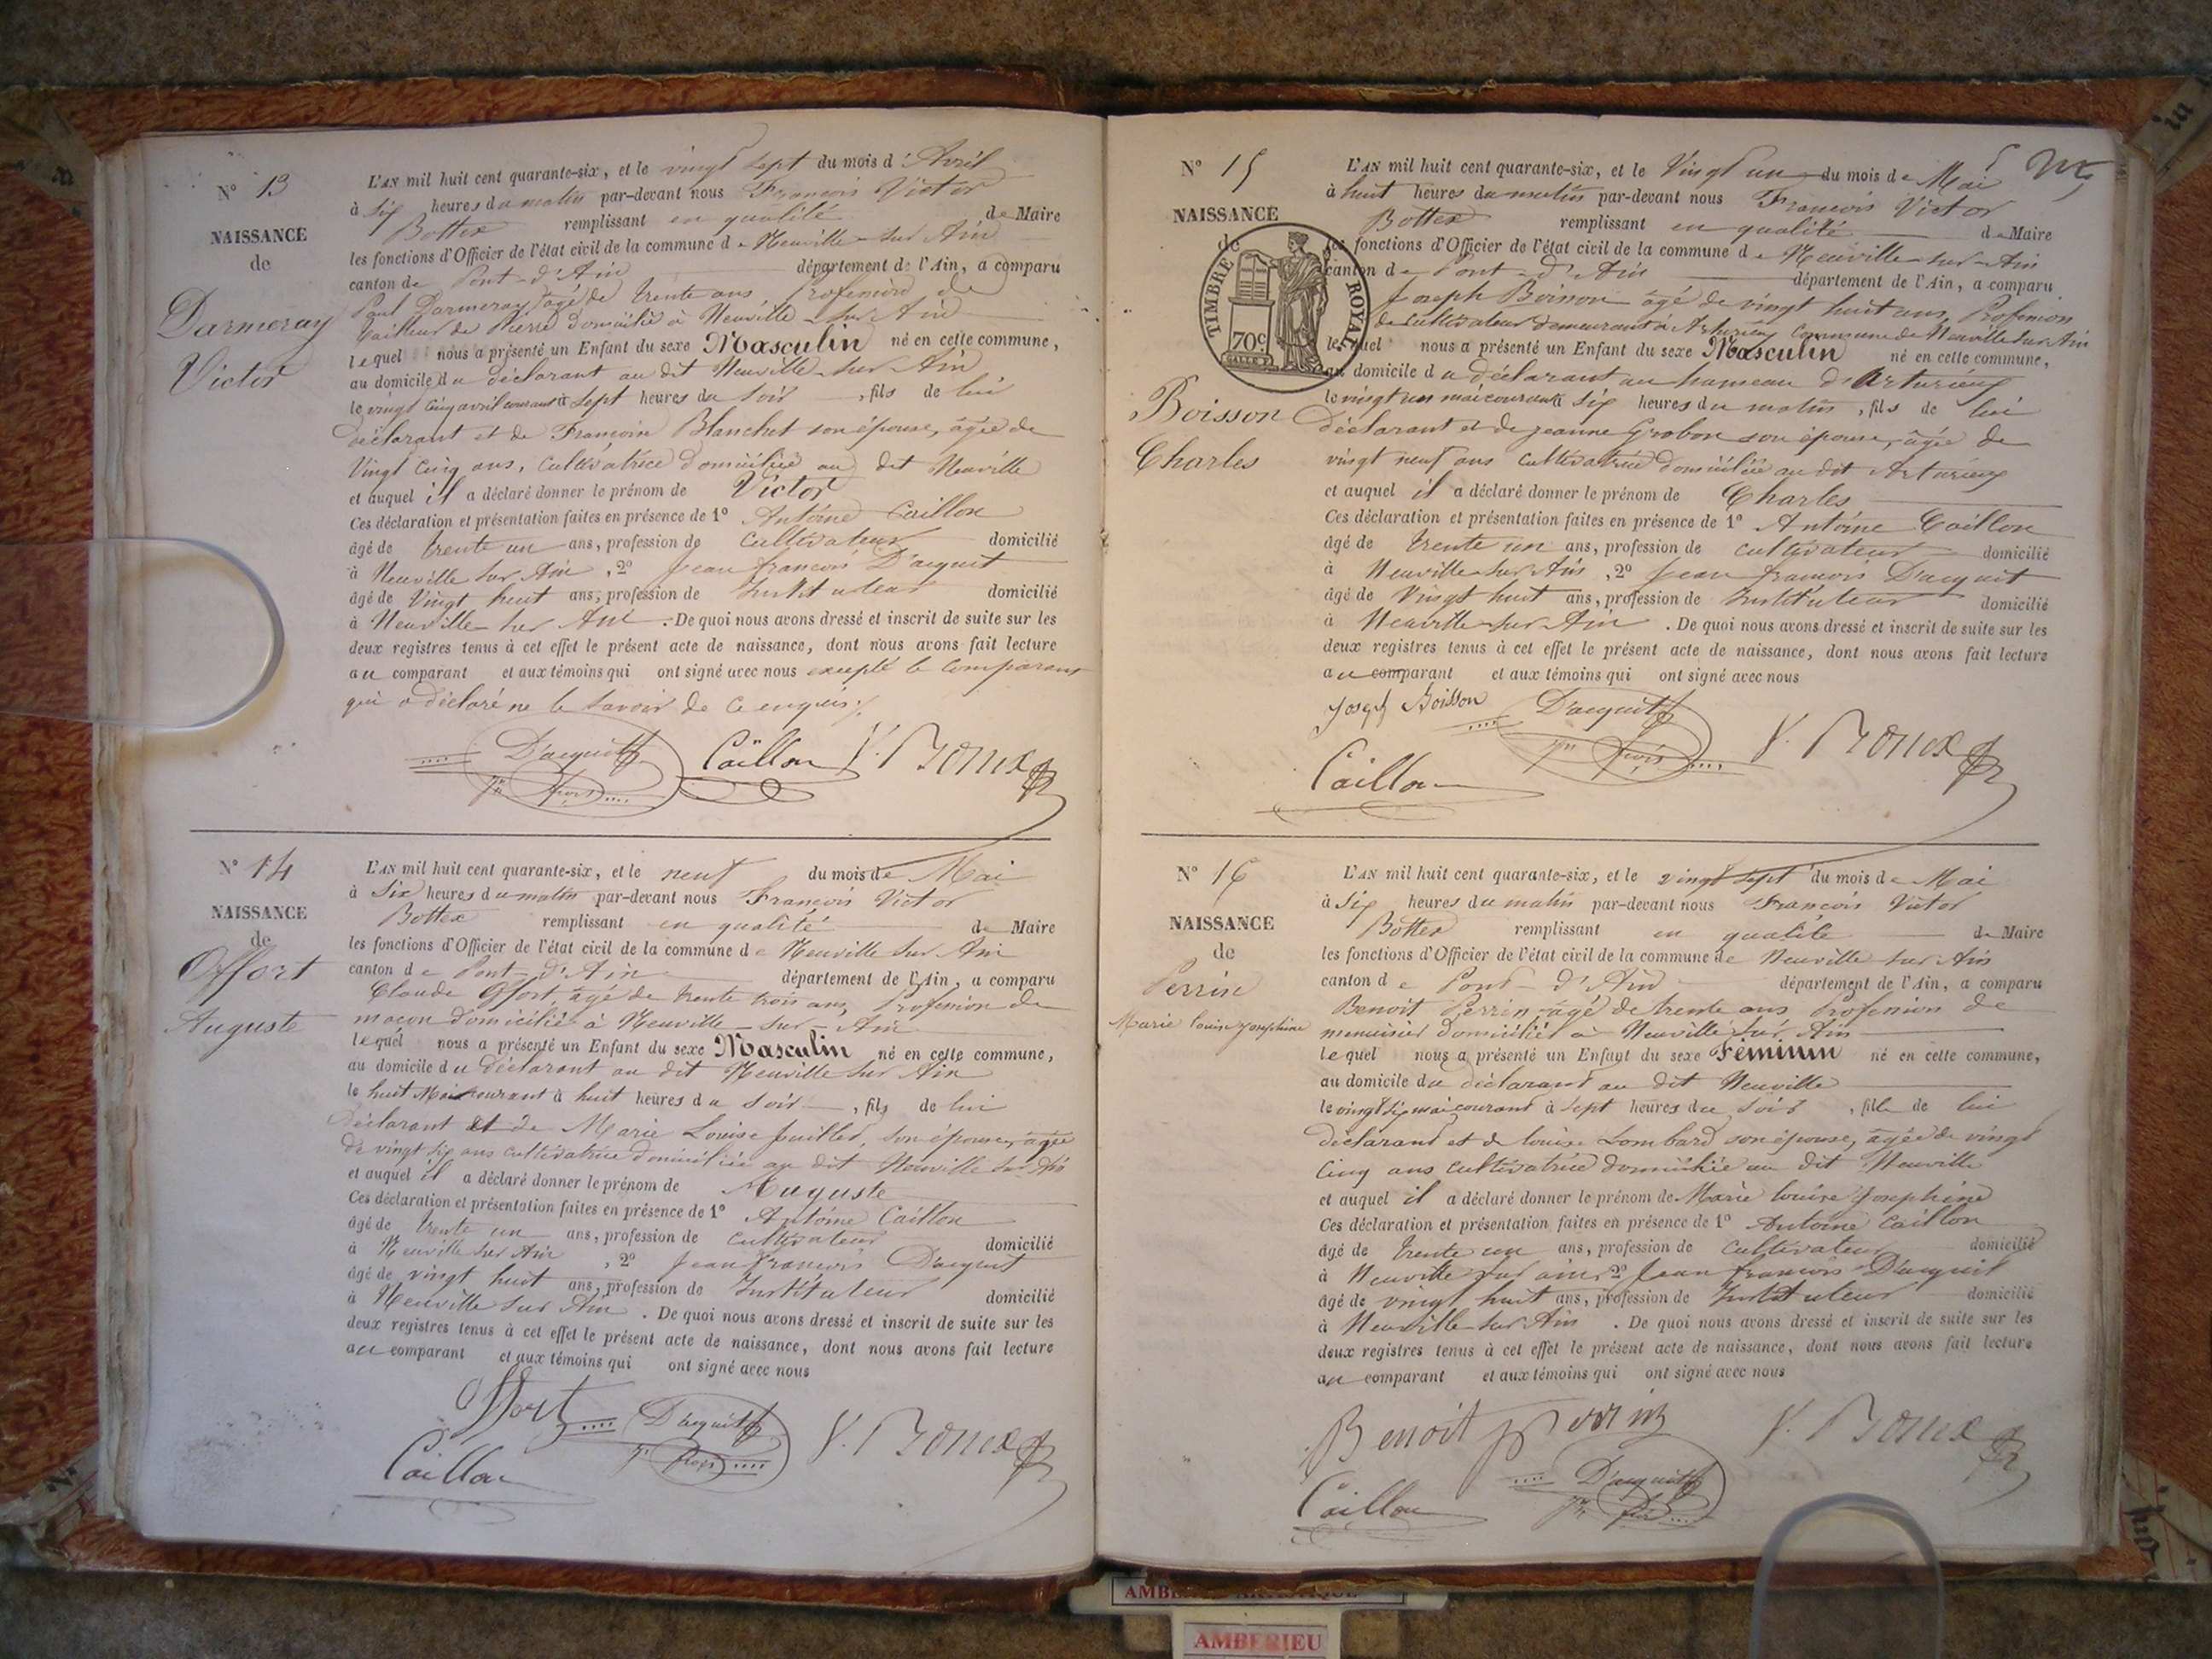 N° 13
NAISSANCE
de
Darmeray
Victor
L'AN mil huit cent quarante-six, et le vingt sept du mois d'Avril
à six heures du matin par-devant nous François Victor
Bottex remplissant en qualité de Maire
les fonctions d'Officier de l'état civil de la commune de Neuville sur Ain
canton de Pont-d'Ain département de l'Ain, a comparu
Paul Darmeray âgé de trente ans profession de
tailleur de Pierre domicilié à Neuville sur Ain
lequel nous a présenté un Enfant du sexe Masculin né en cette commune,
au domicile du déclarant au dit Neuville sur Ain
le vingt cinq avril courant à sept heures du soir, fils de lui
déclarant et de Françoise Blanchet son épouse, âgée de
vingt cinq ans, cultivatrice domiciliée au dit Neuville
et auquel il a déclaré donner le prénom de Victor
Ces déclaration et présentation faites en présence de 1° Antoine Caillon
âgé de trente un ans, profession de cultivateur domicilié
à Neuville sur Ain, 2° Jean françois D'acquit
âgé de vingt huit ans, profession de Instituteur domicilié
à Neuville sur Ain. De quoi nous avons dressé et inscrit de suite sur les
deux registres tenus à cet effet le présent acte de naissance, dont nous avons fait lecture
au comparant et aux témoins qui ont signé avec nous excepté le comparant
qui a déclaré ne le savoir de ce enquis
D'acquit Caillon V. Bottex
Jn fçois
N° 14
NAISSANCE
de
Offort
Auguste
L'AN mil huit cent quarante-six, et le neuf du mois de Mai
à six heures du matin par-devant nous François Victor
Bottex remplissant en qualité de Maire
les fonctions d'Officier de l'état civil de la commune de Neuville sur Ain
canton de Pont-d'Ain département de l'Ain, a comparu
Claude Offort, âgé de trente trois ans, Profession de
maçon domicilié à Neuville-sur-Ain
lequel nous a présenté un Enfant du sexe Masculin né en cette commune,
au domicile du déclarant au dit Neuville sur Ain
le huit Mai courant à huit heures du soir, fils de lui
déclarant et de Marie Louise Juillet, son épouse, âgée
de vingt six ans cultivatrice domiciliée au dit Neuville sur Ain
et auquel il a déclaré donner le prénom de Auguste
Ces déclaration et présentation faites en présence de 1° Antoine Caillon
âgé de trente un ans, profession de cultivateur domicilié
à Neuville sur Ain, 2° Jean François D'acquit
âgé de vingt huit ans, profession de Instituteur domicilié
à Neuville sur Ain. De quoi nous avons dressé et inscrit de suite sur les
deux registres tenus à cet effet le présent acte de naissance, dont nous avons fait lecture
au comparant et aux témoins qui ont signé avec nous
Offort D'acquit V. Bottex
Caillon Jn fçois
N° 15
NAISSANCE
de
TIMBRE ROYAL
70c
Boisson
Charles
L'AN mil huit cent quarante-six, et le Vingt un du mois de Mai
à huit heures du matin par-devant nous François Victor
Bottex remplissant en qualité de Maire
les fonctions d'Officier de l'état civil de la commune de Neuville-sur-Ain
canton de Pont-d'Ain département de l'Ain, a comparu
Joseph Boisson âgé de vingt huit ans, Profession
de cultivateur demeurant à Arturieux commune de Neuville sur Ain
lequel nous a présenté un Enfant du sexe Masculin né en cette commune,
au domicile du déclarant au hameau d'Arturieux
le vingt un mai courant à six heures du matin, fils de lui
déclarant et de jeanne Grobon son épouse, âgée de
vingt neuf ans cultivatrice domiciliée au dit Arturieux
et auquel il a déclaré donner le prénom de Charles
Ces déclaration et présentation faites en présence de 1° Antoine Caillon
âgé de trente un ans, profession de cultivateur domicilié
à Neuville sur Ain, 2° Jean françois D'acquit
âgé de vingt huit ans, profession de Instituteur domicilié
à Neuville-sur-Ain. De quoi nous avons dressé et inscrit de suite sur les
deux registres tenus à cet effet le présent acte de naissance, dont nous avons fait lecture
au comparant et aux témoins qui ont signé avec nous
Joseph Boisson D'acquit V. Bottex
Caillon Jn fçois
N° 16
NAISSANCE
de
Perrin
Marie louise Josephine
L'AN mil huit cent quarante-six, et le vingt sept du mois de Mai
à six heures du matin par-devant nous François Victor
Bottex remplissant en qualité de Maire
les fonctions d'Officier de l'état civil de la commune de Neuville sur Ain
canton de Pont-d'Ain département de l'Ain, a comparu
Benoit Perrin âgé de trente ans Profession de
menuisier domicilié à Neuville sur Ain
lequel nous a présenté un Enfant du sexe Féminin né en cette commune,
au domicile du déclarant au dit Neuville
le vingt six mai courant à sept heures du soir, fille de lui
déclarant et de louise Lombard son épouse, âgée de vingt
cinq ans cultivatrice domiciliée au dit Neuville
et auquel il a déclaré donner le prénom de Marie louise Josephine
Ces déclaration et présentation faites en présence de 1° Antoine Caillon
âgé de trente un ans, profession de cultivateur domicilié
à Neuville sur ain, 2° Jean françois D'acquit
âgé de vingt huit ans, profession de Instituteur domicilié
à Neuville sur Ain. De quoi nous avons dressé et inscrit de suite sur les
deux registres tenus à cet effet le présent acte de naissance, dont nous avons fait lecture
au comparant et aux témoins qui ont signé avec nous
Benoit perrin V. Bottex
Caillon D'acquit
Jn fçois
AMBERIEU